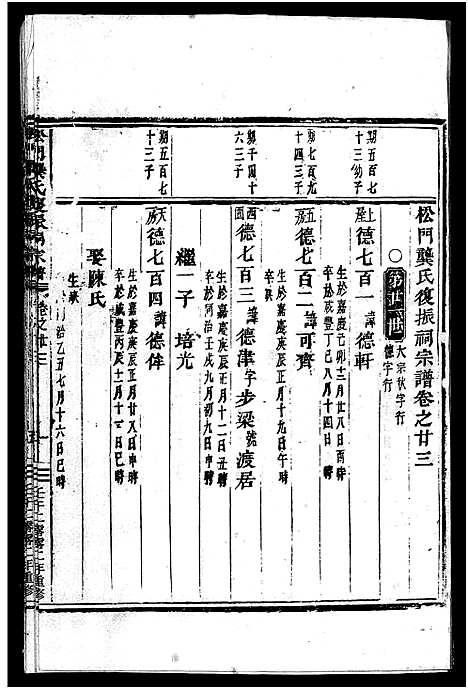 松門龔氏復振祠宗譜卷之廿三
○第廿二世 大宗秋字行 德字行
期五百七十三幼子
上屋 德七百一 諱德軒
生於嘉慶己卯十二月廿八日
卒於咸豐丁巳八月十四日 時
期七百九十四三子
五房 德七百二 諱可齊
生於嘉慶庚辰十月十九日午時
卒於
期千四十六三子
西園 德七百三 諱德津字步梁號渡居
生於嘉慶庚辰正月十二日丑時
卒於同治壬戌九月初九日申時
繼一子 培光
期五百七十三子
德七百四 諱德俸
生於嘉慶庚辰十二月十八日 時
卒於咸豐丙辰十一月十一日巳時
娶陳氏
生
治乙丑七月十六日巳時
卷之廿三